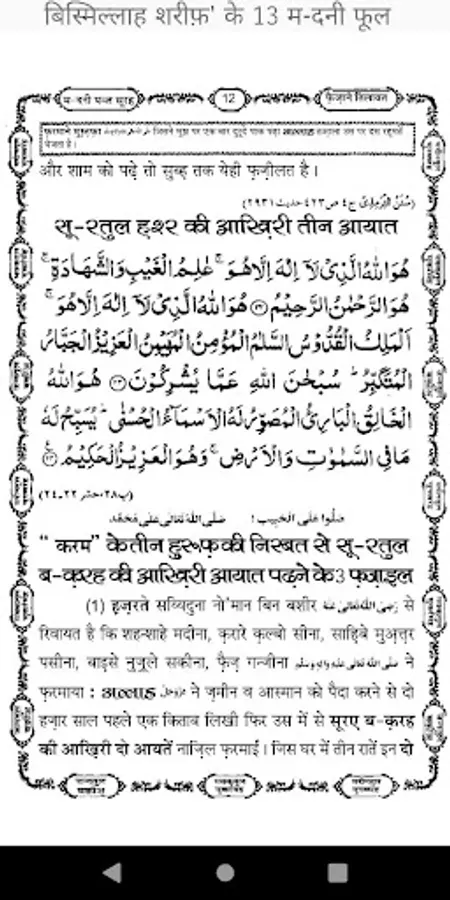 बिस्मिल्लाह शरीफ़' के 13 म-दनी फूल
म-दनी पन्ज सूरह
12
फ़ैज़ाने तिलावत
फ़रमाने मुस्तफ़ा जिसने मुझ पर एक बार दुरूदे पाक पढ़ा उस पर दस रहमतें
भेजता है।
और शाम को पढ़े तो सुब्ह तक येही फ़ज़ीलत है।
(سُنَنُ التِّرمِذِی، ج٤ ص٤٢٣ حدیث ٢٩٣١)
सू-रतुल हश्र की आख़िरी तीन आयात
هُوَ اللهُ الَّذِيْ لَاۤ اِلٰهَ اِلَّا هُوَ ۚ عٰلِمُ الْغَيْبِ وَالشَّهَادَةِ ۚ
هُوَ الرَّحْمٰنُ الرَّحِيْمُ ﴿٢٢﴾ هُوَ اللهُ الَّذِيْ لَاۤ اِلٰهَ اِلَّا هُوَ ۚ
اَلْمَلِكُ الْقُدُّوْسُ السَّلٰمُ الْمُؤْمِنُ الْمُهَيْمِنُ الْعَزِيْزُ الْجَبَّارُ
الْمُتَكَبِّرُ ؕ سُبْحٰنَ اللهِ عَمَّا يُشْرِكُوْنَ ﴿٢٣﴾ هُوَ اللهُ
الْخَالِقُ الْبَارِئُ الْمُصَوِّرُ لَهُ الْاَسْمَآءُ الْحُسْنٰى ؕ يُسَبِّحُ لَهٗ
مَا فِي السَّمٰوٰتِ وَالْاَرْضِ ۚ وَهُوَ الْعَزِيْزُ الْحَكِيْمُ ﴿٢٤﴾
(پ٢٨، حشر ٢٢ـ٢٤)
صَلُّوا عَلَى الْحَبِيب ! صَلَّى اللهُ تَعَالٰى عَلٰى مُحَمَّد
“ करम” के तीन हुरूफ़ की निस्बत से सू-रतुल
ब-क़रह की आख़िरी आयात पढ़ने के 3 फ़ज़ाइल
(1) हज़रते सय्यिदुना नो'मान बिन बशीर رَضِيَ اللهُ تَعَالٰى عَنْهُ से
रिवायत है कि शहन्शाहे मदीना, क़रारे क़ल्बो सीना, साहिबे मुअत्तर
पसीना, बाइसे नुज़ूले सकीना, फ़ैज़ गन्जीना صَلَّى اللهُ تَعَالٰى عَلَيْهِ وَاٰلِهٖ وَسَلَّم ने
फ़रमाया : عَزَّوَجَلَّ ने ज़मीन व आस्मान को पैदा करने से दो
हज़ार साल पहले एक किताब लिखी फिर उस में से सूरए ब-क़रह
की आख़िरी दो आयतें नाज़िल फ़रमाईं। जिस घर में तीन रातें इन दो